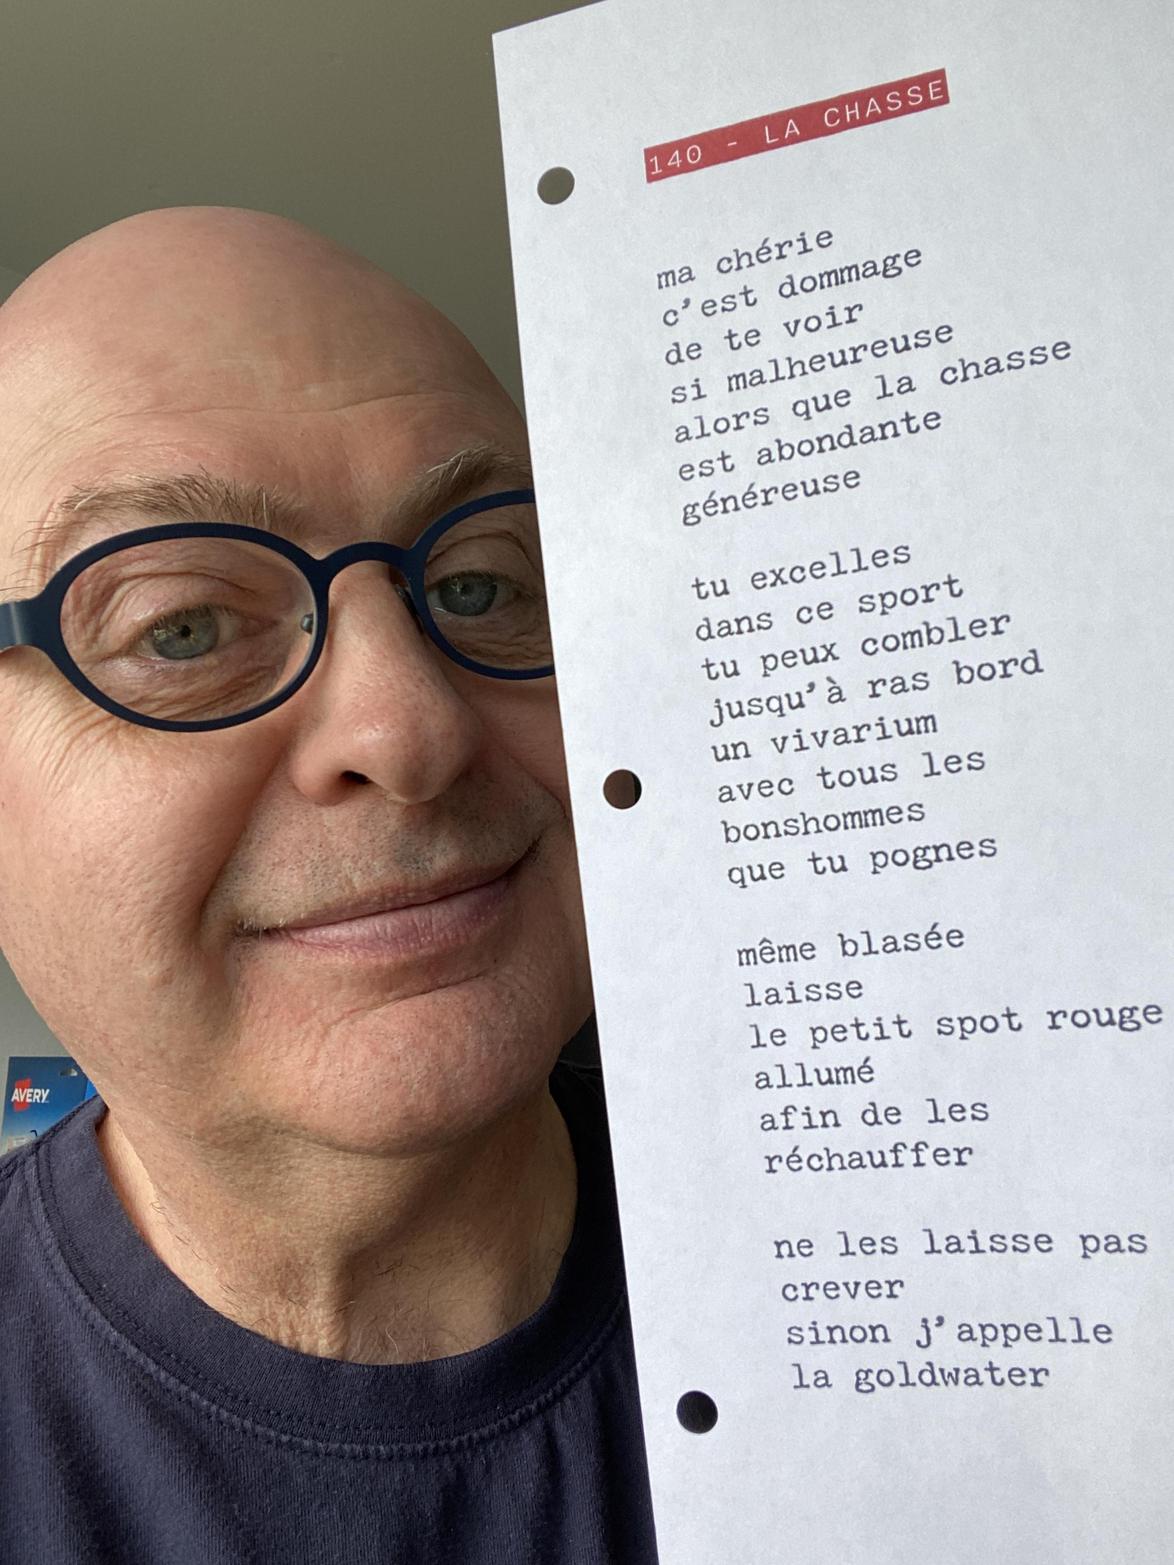 140 - LA CHASSE
ma chérie
c'est dommage
de te voir
si malheureuse
alors que la chasse
est abondante
généreuse
tu excelles
dans ce sport
tu peux combler
jusqu'à ras bord
un vivarium
avec tous les
bonshommes
que tu pognes
même blasée
laisse
le petit spot rouge
allumé
afin de les
réchauffer
ne les laisse pas
crever
sinon j'appelle
la goldwater
AVERY